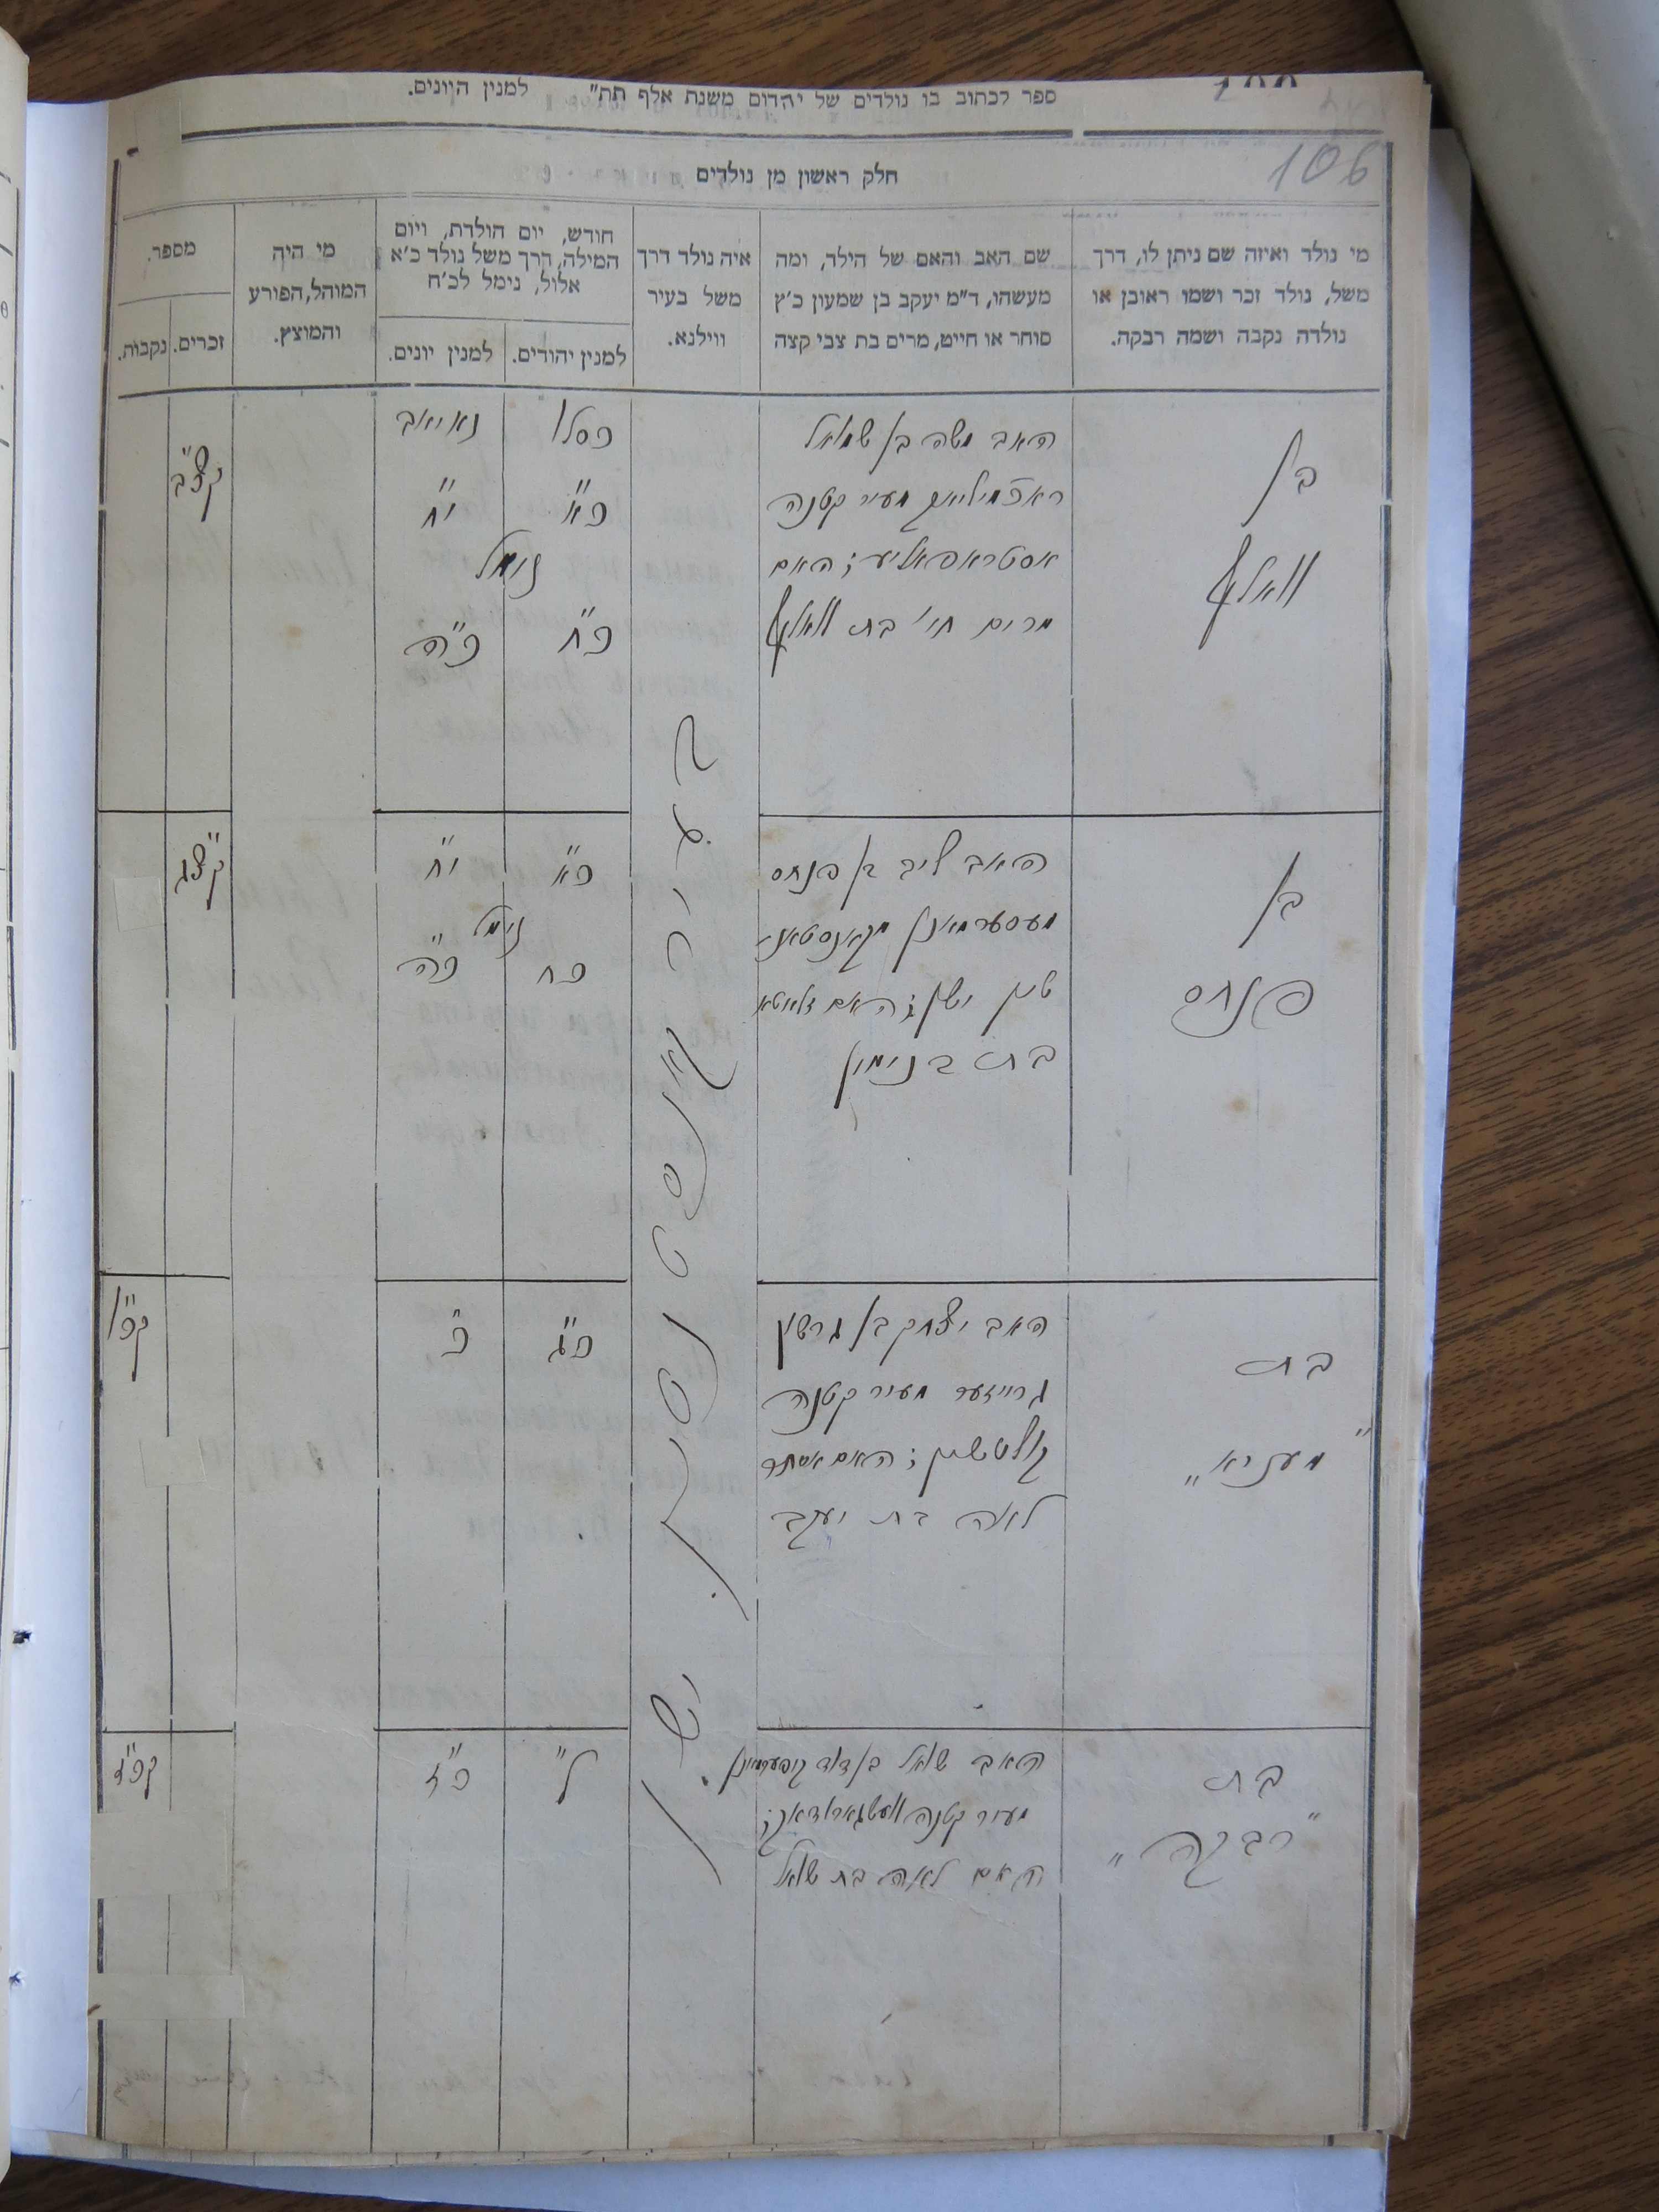 ספר לכתוב בו נולדים של יהדום משנת אלף תת" למנין היונים.
106
חלק ראשון מן נולדים
מי נולד ואיזה שם ניתן לו, דרך
משל, נולד זכר ושמו ראובן או
נולדה נקבה ושמה רבקה.
שם האב והאם של הילד, ומה
מעשהו, ד"מ יעקב בן שמעון כ'ץ
סוחר או חייט, מרים בת צבי קצה
איה נולד דרך
משל בעיר
ווילנא.
חודש, יום הולדת, ויום
המילה, דרך משל נולד כ'א
אלול, נימל לכ'ח
למנין יהודים.
למנין יונים.
מי היה
המוהל, הפורע
והמוצץ.
מספר.
זכרים.
נקבות.
בן
וואלף
האב משה בן שמואל
מעיר קטנה
האם
מרים חי' בת וואלף
כסלו
כ"א
נימול
כ"ח
נאיאב
י"ח
כ"ה
קצ"ב
בן
פנחס
האב ליב בן פנחס
מעסערמאן מקאנסטאנ-
טין ישן; האם
בת בנימין
כ"א
נימול
כח
י"ח
כ"ה
קצ"ג
בת
"מעניא"
האב יצחק בן גרשון
מעיר קטנה
האם אסתר
לאה בת יעקב
כ"ג
כ'
קפ"ו
בת
"רבקה"
האב שואל בן דוד קופערמאן
מעיר קטנה
האם לאה בת שואל
ל"
כ"ז
קפ"ז
בעיר קאנסטנטין. ישן